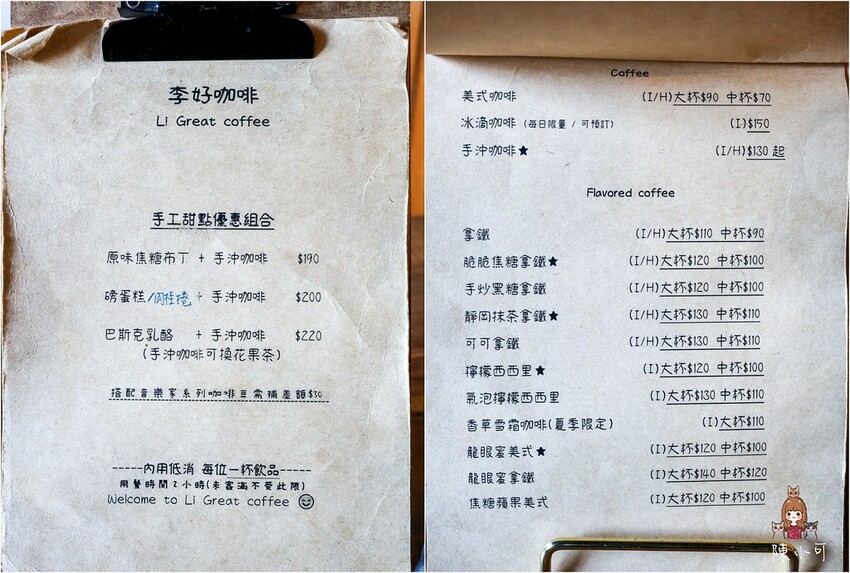 李好咖啡
Li Great coffee
手工甜點優惠組合
原味焦糖布丁 + 手沖咖啡 $190
磅蛋糕/肉桂捲 + 手沖咖啡 $200
巴斯克乳酪 + 手沖咖啡 $220
(手沖咖啡可換花果茶)
搭配音樂家系列咖啡豆需補差額$30
-----內用低消 每位一杯飲品-----
用餐時間2小時(未客滿不受此限)
Welcome to Li Great coffee 😊
Coffee
美式咖啡 (I/H)大杯$90 中杯$70
冰滴咖啡 (每日限量 / 可預訂) (I)$150
手沖咖啡★ (I/H)$130 起
Flavored coffee
拿鐵 (I/H)大杯$110 中杯$90
脆脆焦糖拿鐵★ (I/H)大杯$120 中杯$100
手炒黑糖拿鐵 (I/H)大杯$120 中杯$100
靜岡抹茶拿鐵★ (I/H)大杯$130 中杯$110
可可拿鐵 (I/H)大杯$130 中杯$110
檸檬西西里★ (I)大杯$120 中杯$100
氣泡檸檬西西里 (I)大杯$130 中杯$110
香草雪霜咖啡(夏季限定) (I)大杯$110
龍眼蜜美式★ (I)大杯$120 中杯$100
龍眼蜜拿鐵 (I)大杯$140 中杯$120
焦糖蘋果美式 (I)大杯$120 中杯$100
陳小可